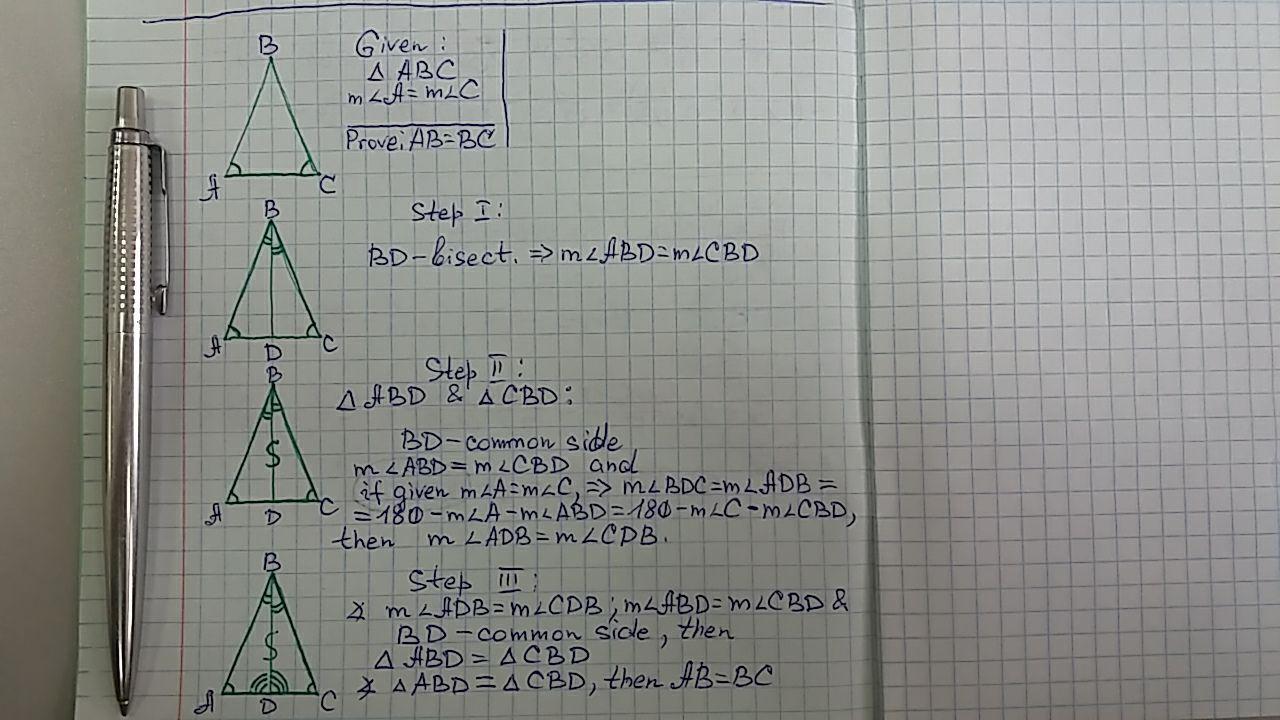 B
Given:
△ ABC
m∠A=m∠C
Prove: AB=BC
A C
B
Step I:
BD-bisect. ⇒ m∠ABD=m∠CBD
A D C
Step II:
B
△ ABD & △ CBD:
BD-common side
$
m∠ABD=m∠CBD and
if given m∠A=m∠C, ⇒ m∠BDC=m∠ADB=
A D C
=180-m∠A-m∠ABD=180-m∠C-m∠CBD,
then m∠ADB=m∠CDB.
B
Step III:
m∠ADB=m∠CDB; m∠ABD=m∠CBD &
BD-common side, then
$
△ ABD = △ CBD
△ ABD = △ CBD, then AB=BC
A D C